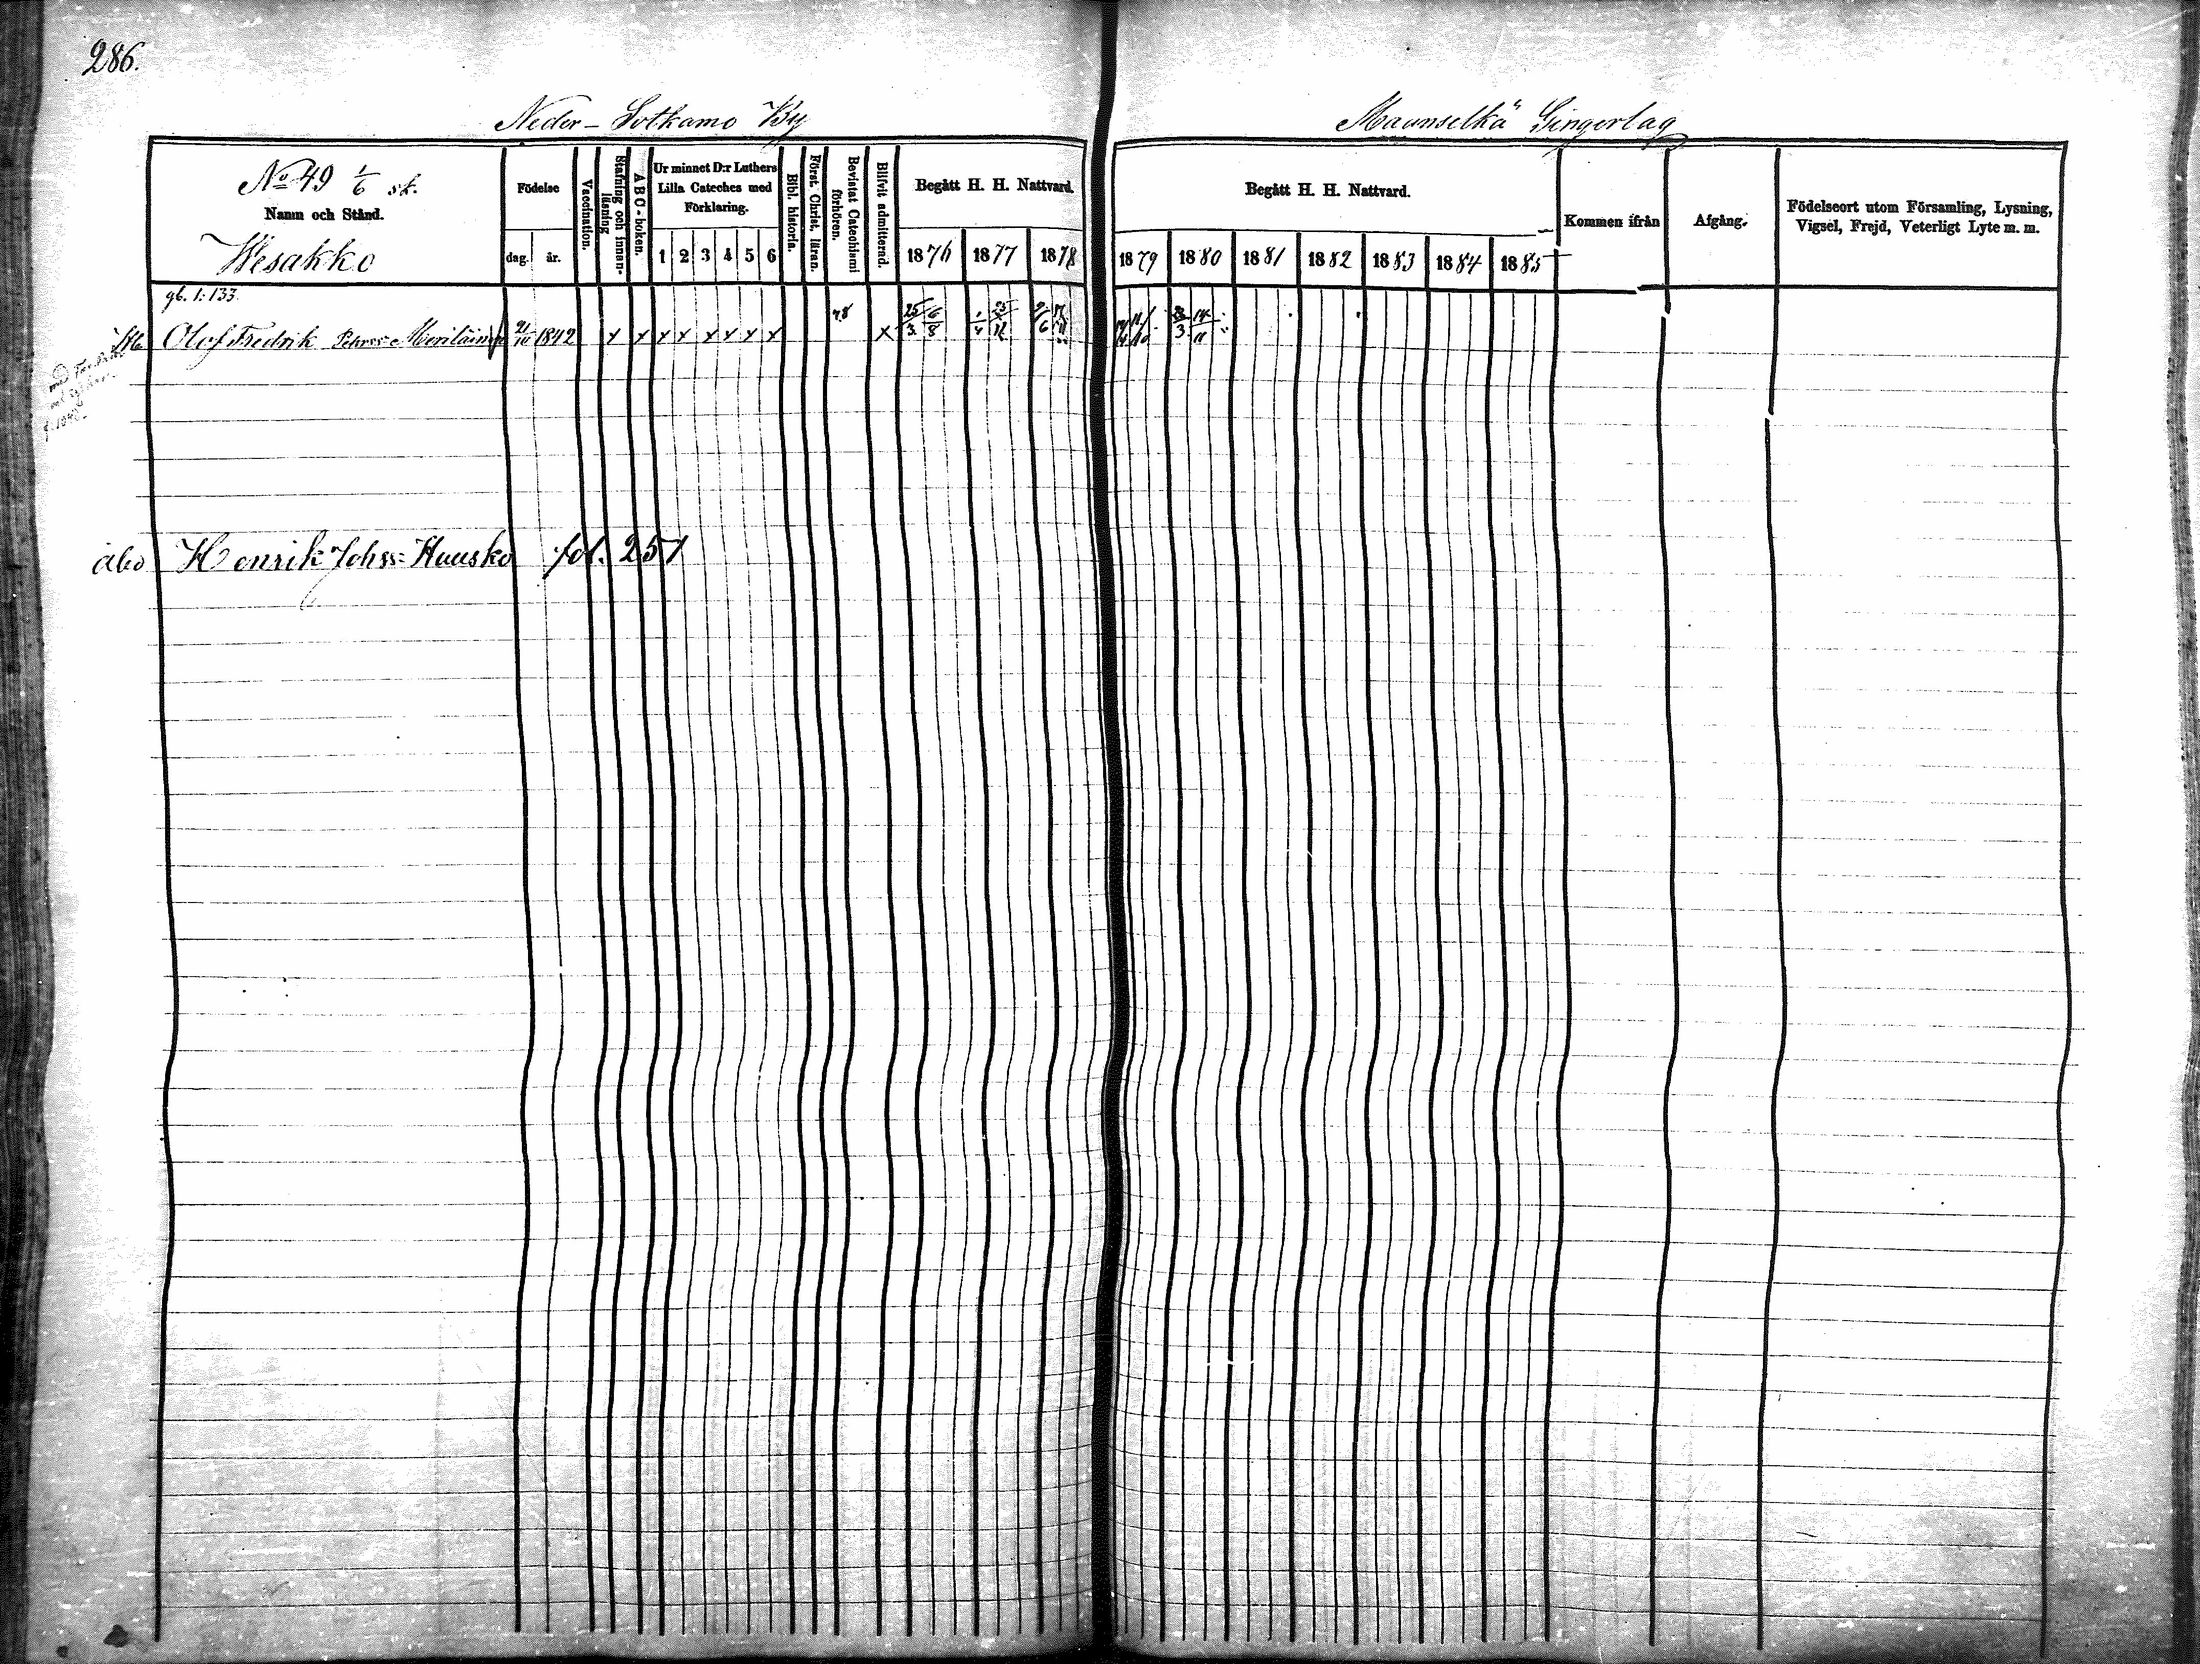 286.
Neder-Sotkamo By
Maanselkä Gingerlag
No 49 1/6 sk.
Namn och Stånd.
Wesakko
Födelse
dag. år.
Vaccination.
Stafning och innan-läsning
A B C-boken.
Ur minnet D:r Luthers Lilla Cateches med Förklaring.
1 2 3 4 5 6
Bibl. historia.
Först. Christ. läran.
Bevistat Catechismi förhören.
Blifvit admitterad.
Begått H. H. Nattvard.
1876 1877 1878
Begått H. H. Nattvard.
1879 1880 1881 1882 1883 1884 1885
Kommen ifrån
Afgång.
Födelseort utom Församling, Lysning, Vigsel, Frejd, Veterligt Lyte m. m.
gb. 1: 133.
Olof Fredrik Pehrss: Meriläinen 21/10 1842 x x x x x x x x 78 x 25/3 6/8
Åbo Henrik Johss: Huusko fol. 251